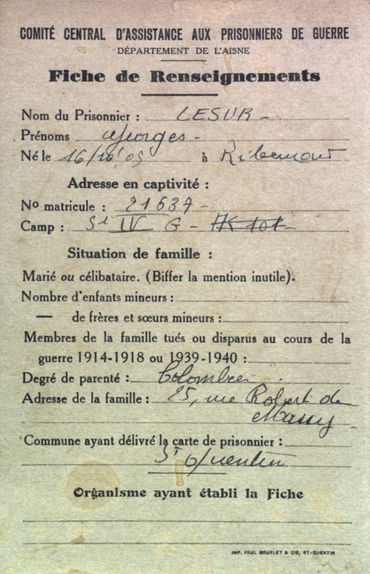 COMITÉ CENTRAL D'ASSISTANCE AUX PRISONNIERS DE GUERRE
DÉPARTEMENT DE L'AISNE
Fiche de Renseignements
Nom du Prisonnier : LESUR -
Prénoms Georges -
Né le 16/10/09 à Ribemont
Adresse en captivité :
No matricule : 21637 -
Camp : Sl IV G -
Situation de famille :
Marié ou célibataire. (Biffer la mention inutile).
Nombre d'enfants mineurs :
— de frères et sœurs mineurs :
Membres de la famille tués ou disparus au cours de la
guerre 1914-1918 ou 1939-1940 :
Degré de parenté :
Adresse de la famille : 25, rue Robert de
Massy -
Commune ayant délivré la carte de prisonnier :
St Quentin
Organisme ayant établi la Fiche
IMP. PAUL BOURLET & CIE, ST-QUENTIN